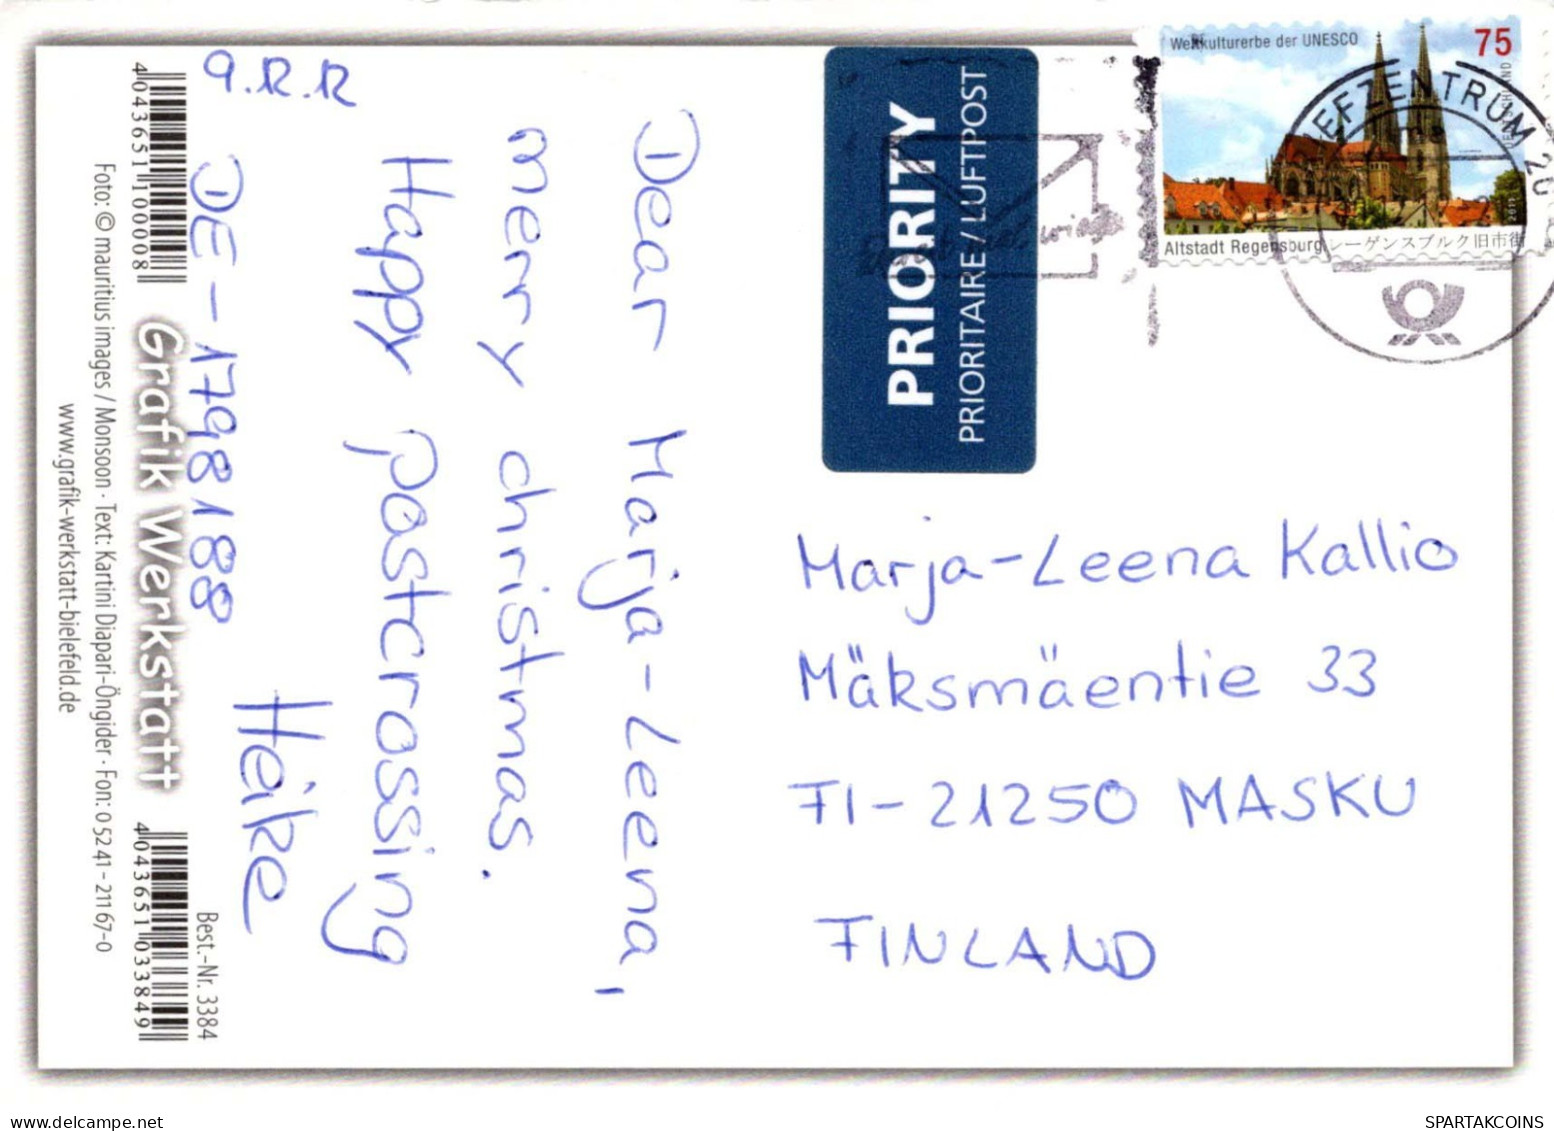 9.12.12
DE-1798188
Dear Marja-Leena,
merry christmas.
Happy postcrossing
Heike
Marja-Leena Kallio
Mäksmäentie 33
FI-21250 MASKU
FINLAND
PRIORITY
PRIORITAIRE / LUFTPOST
Weltkulturerbe der UNESCO
75
Altstadt Regensburg レーゲンスブルク旧市街
EFZENTRUM 20
4 043651 100008
Grafik Werkstatt
4 043651 033849
Best.-Nr. 3384
Foto: © mauritius images / Monsoon · Text: Kartini Diapari-Öngider · Fon: 0 52 41 - 211 67-0
www.grafik-werkstatt-bielefeld.de
SPARTAKCOINS